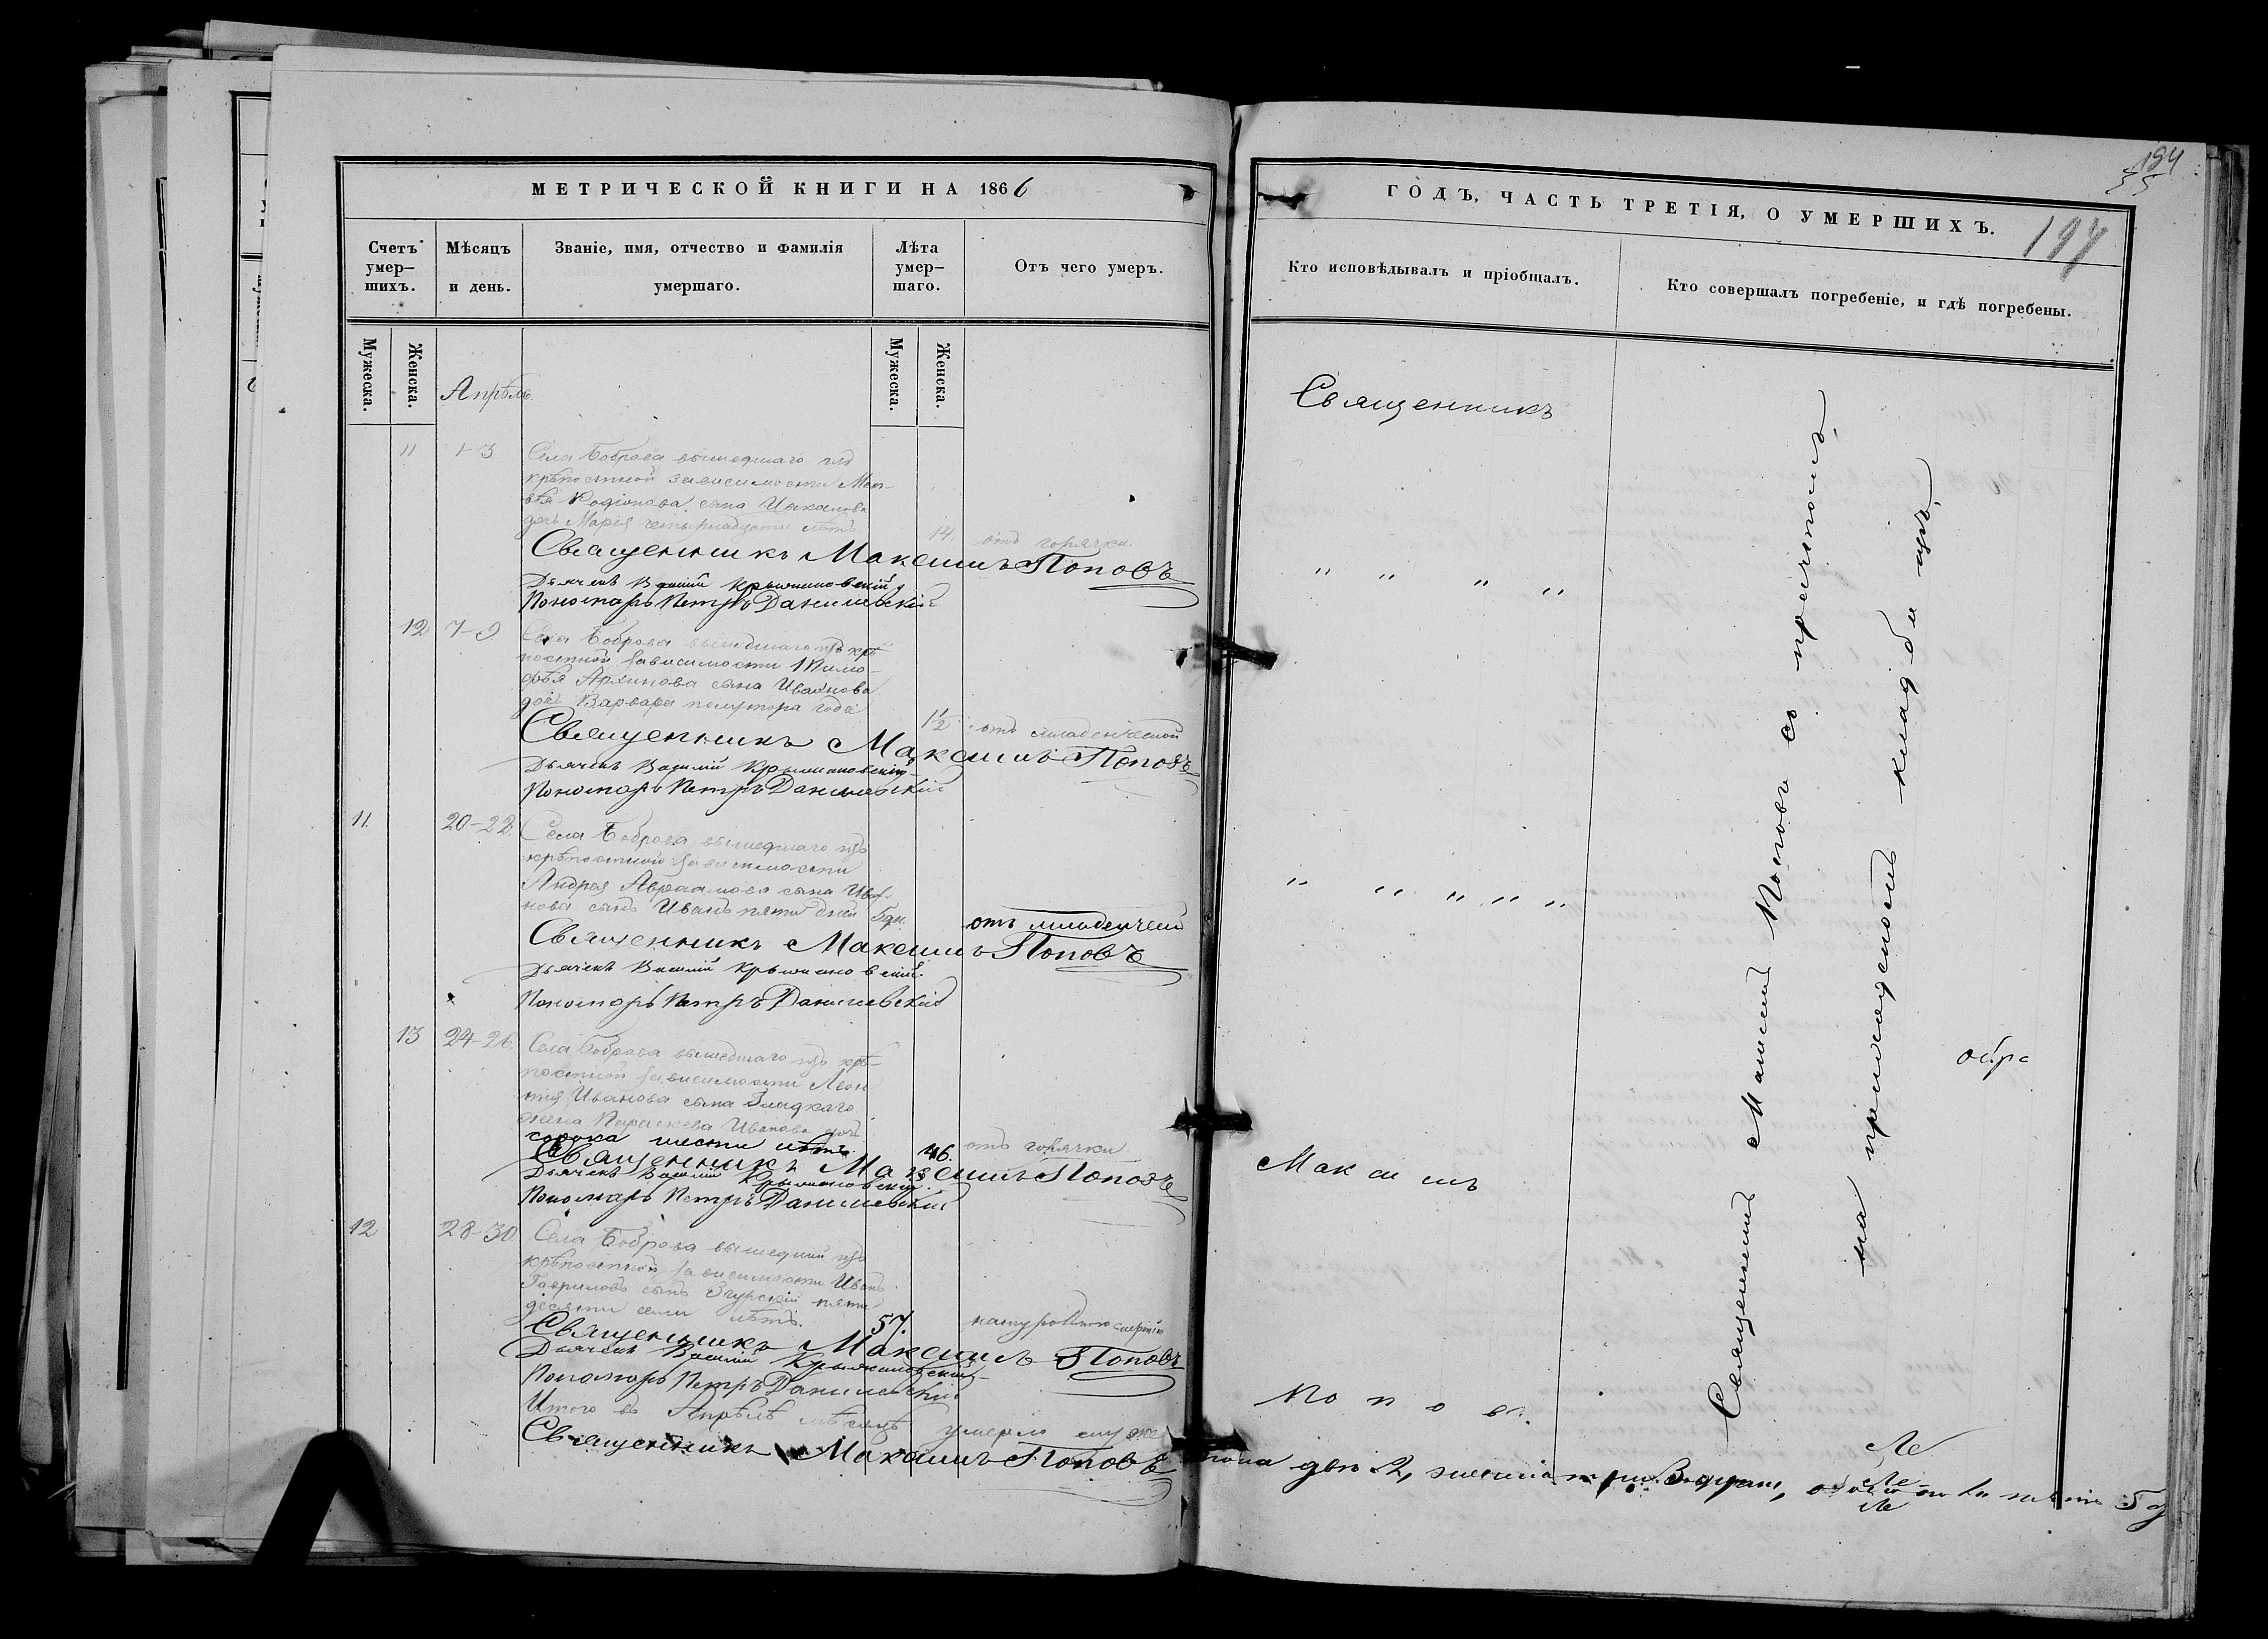 МЕТРИЧЕСКОЙ КНИГИ НА 1866
Счетъ умер-
шихъ.
Мѣсяцъ
и день.
Званіе, имя, отчество и фамилія
умершаго.
Лѣта
умер-
шаго.
Отъ чего умеръ.
Мужеска.
Женска.
Мужеска.
Женска.
Апрѣль.
11 1-3 Села Боброва вышедшаго изъ
крѣпостной зависимости Мат-
вѣя Родіонова сына
дочь Марія четырнадцати лѣтъ
14. отъ горячки.
Священникъ Максимъ Поповъ
Дьячекъ Василій Крыжановскій
Пономарь Петръ Данилевскій
12 7-9 Села Боброва вышедшаго изъ крѣ-
постной зависимости Тимо-
фѣя Архипова сына Иванова
дочь Варвара полутора года
1 1/2 отъ младенческой
Священникъ Максимъ Поповъ
Дьячекъ Василій Крыжановскій
Пономарь Петръ Данилевскій
11. 20-22. Села Боброва вышедшаго изъ
крѣпостной зависимости
Андрея Авраамова сына Ива-
нова сынъ Иванъ пяти дней
5 дн. отъ младенческой
Священникъ Максимъ Поповъ
Дьячекъ Василій Крыжановскій.
Пономарь Петръ Данилевскій
13 24-26. Села Боброва вышедшаго изъ крѣ-
постной зависимости Леон-
тія Иванова сына Гладкаго
жена Параскева Иванова дочь
сорока шести лѣтъ.
46. отъ горячки
Священникъ Максимъ Поповъ
Дьячекъ Василій Крыжановскій.
Пономарь Петръ Данилевскій
12 28-30 Села Боброва вышедшій изъ
крѣпостной зависимости Иванъ
Гавриловъ сынъ Згурскій пяти
десяти семи лѣтъ.
57. натуральною смертію
Священникъ Максимъ Поповъ
Дьячекъ Василій Крыжановскій
Пономарь Петръ Данилевскій
Итого въ Апрѣлѣ мѣсяцѣ умерло муже
Священникъ Максимъ Поповъ
194
197
ГОДЪ, ЧАСТЬ ТРЕТІЯ, О УМЕРШИХЪ.
Кто исповѣдывалъ и пріобщалъ.
Кто совершалъ погребеніе, и гдѣ погребены.
Священникъ
" " " "
" " " " "
Максимъ
Поповъ.
Священникъ Максимъ Поповъ съ причтомъ,
на приходскомъ кладбищѣ,
пола два 2, женска три